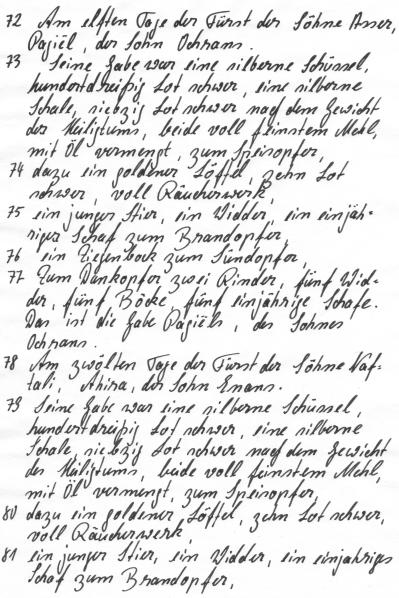 72 Am elften Tage der Fürst der Söhne Asser,
Pagiël, der Sohn Ochrans.
73 Seine Gabe war eine silberne Schüssel,
hundertdreißig Lot schwer, eine silberne
Schale, siebzig Lot schwer nach dem Gewicht
des Heiligtums, beide voll feinstem Mehl,
mit Öl vermengt, zum Speisopfer,
74 dazu ein goldener Löffel, zehn Lot
schwer, voll Räucherwerk,
75 ein junger Stier, ein Widder, ein einjäh-
riges Schaf zum Brandopfer,
76 ein Ziegenbock zum Sündopfer,
77 Zum Dankopfer zwei Rinder, fünf Wid-
der, fünf Böcke, fünf einjährige Schafe.
Das ist die Gabe Pagiëls, des Sohnes
Ochrans.
78 Am zwölten Tage der Fürst der Söhne Naf-
tali, Ahira, der Sohn Enans.
79 Seine Gabe war eine silberne Schüssel,
hundertdreißig Lot schwer, eine silberne
Schale, siebzig Lot schwer nach dem Gewicht
des Heiligtums, beide voll feinstem Mehl,
mit Öl vermengt, zum Speisopfer,
80 dazu ein goldener Löffel, zehn Lot schwer,
voll Räucherwerk,
81 ein junger Stier, ein Widder, ein einjähriges
Schaf zum Brandopfer,